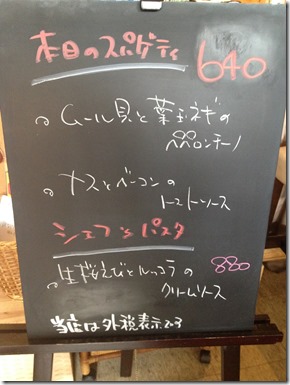 本日のスパゲティ 640
ムール貝と葉玉ネギの
ペペロンチーノ
ナスとベーコンの
トマトソース
シェフ's パスタ
生桜えびとルッコラの 880
クリームソース
当店は外税表示です